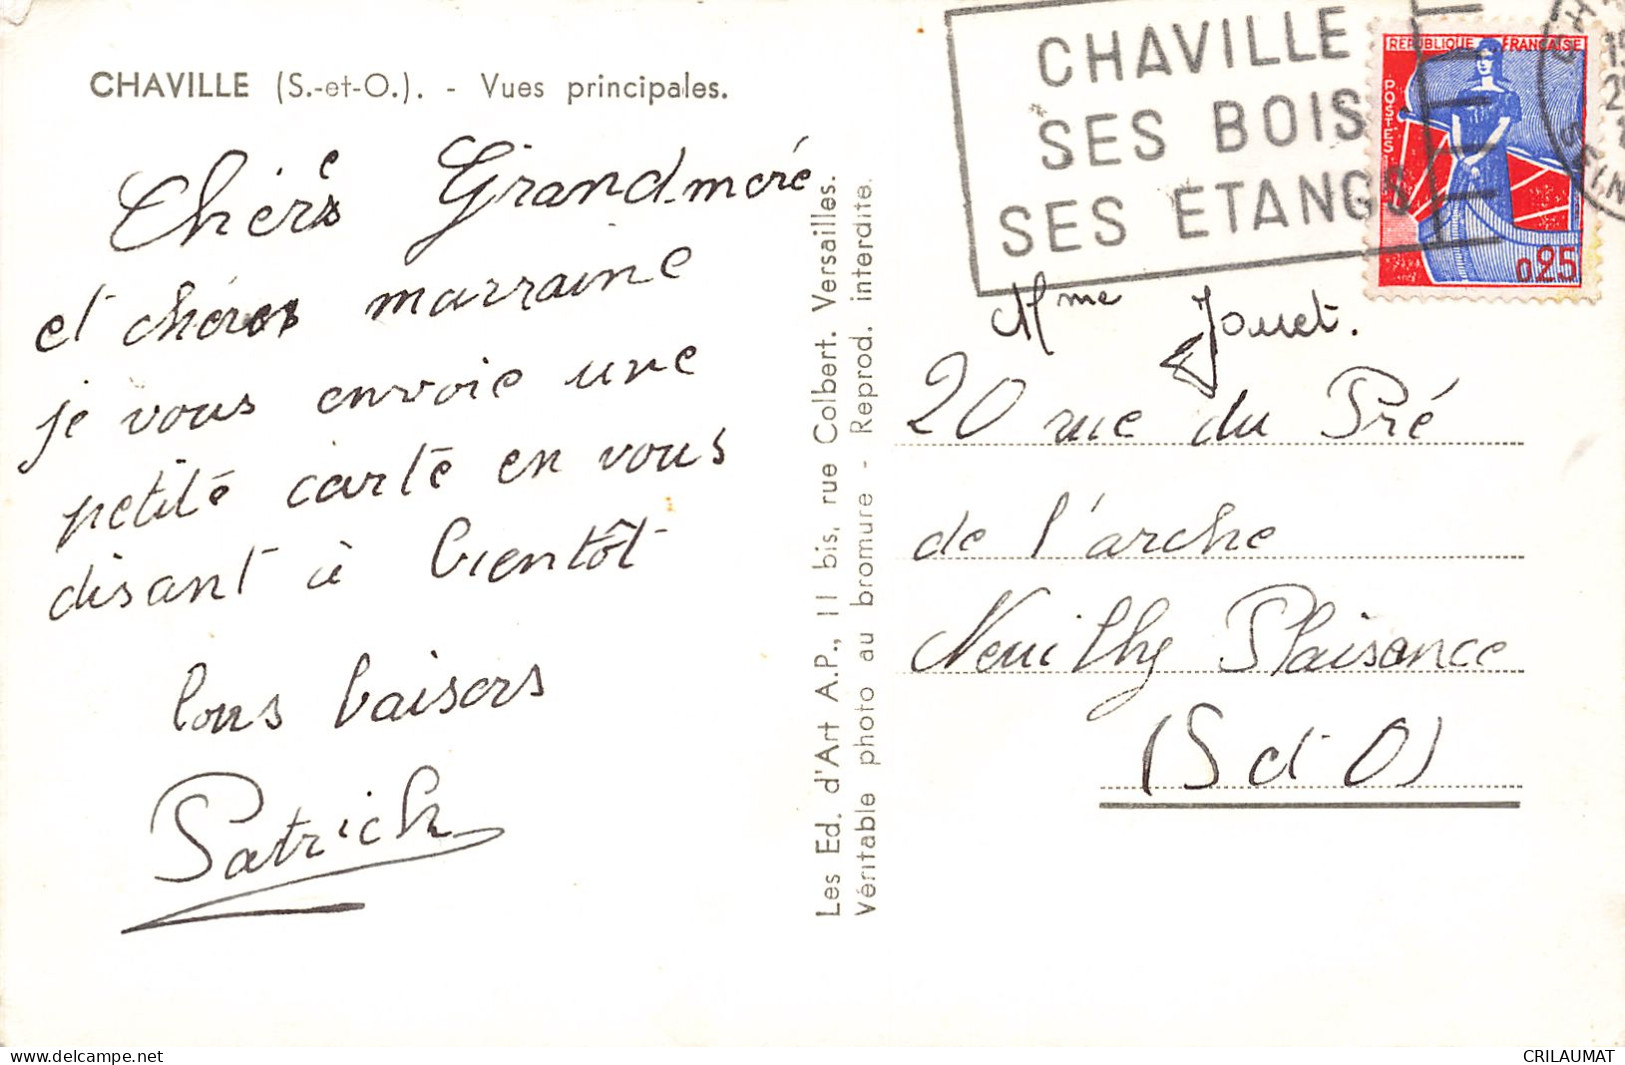 CHAVILLE (S.-et-O.). - Vues principales.
Chère Grandmère
et chère marraine
je vous envoie une
petite carte en vous
disant à bientôt
bons baisers
Patrick
Les Ed. d'Art A.P., 11 bis, rue Colbert. Versailles.
Véritable photo au bromure - Reprod. interdite.
CHAVILLE
SES BOIS
SES ETANGS
REPUBLIQUE FRANÇAISE
POSTES
0,25
Mme Jouet.
20 rue du Pré
de l'arche
Neuilly Plaisance
(S et O)
CRILAUMAT
www.delcampe.net